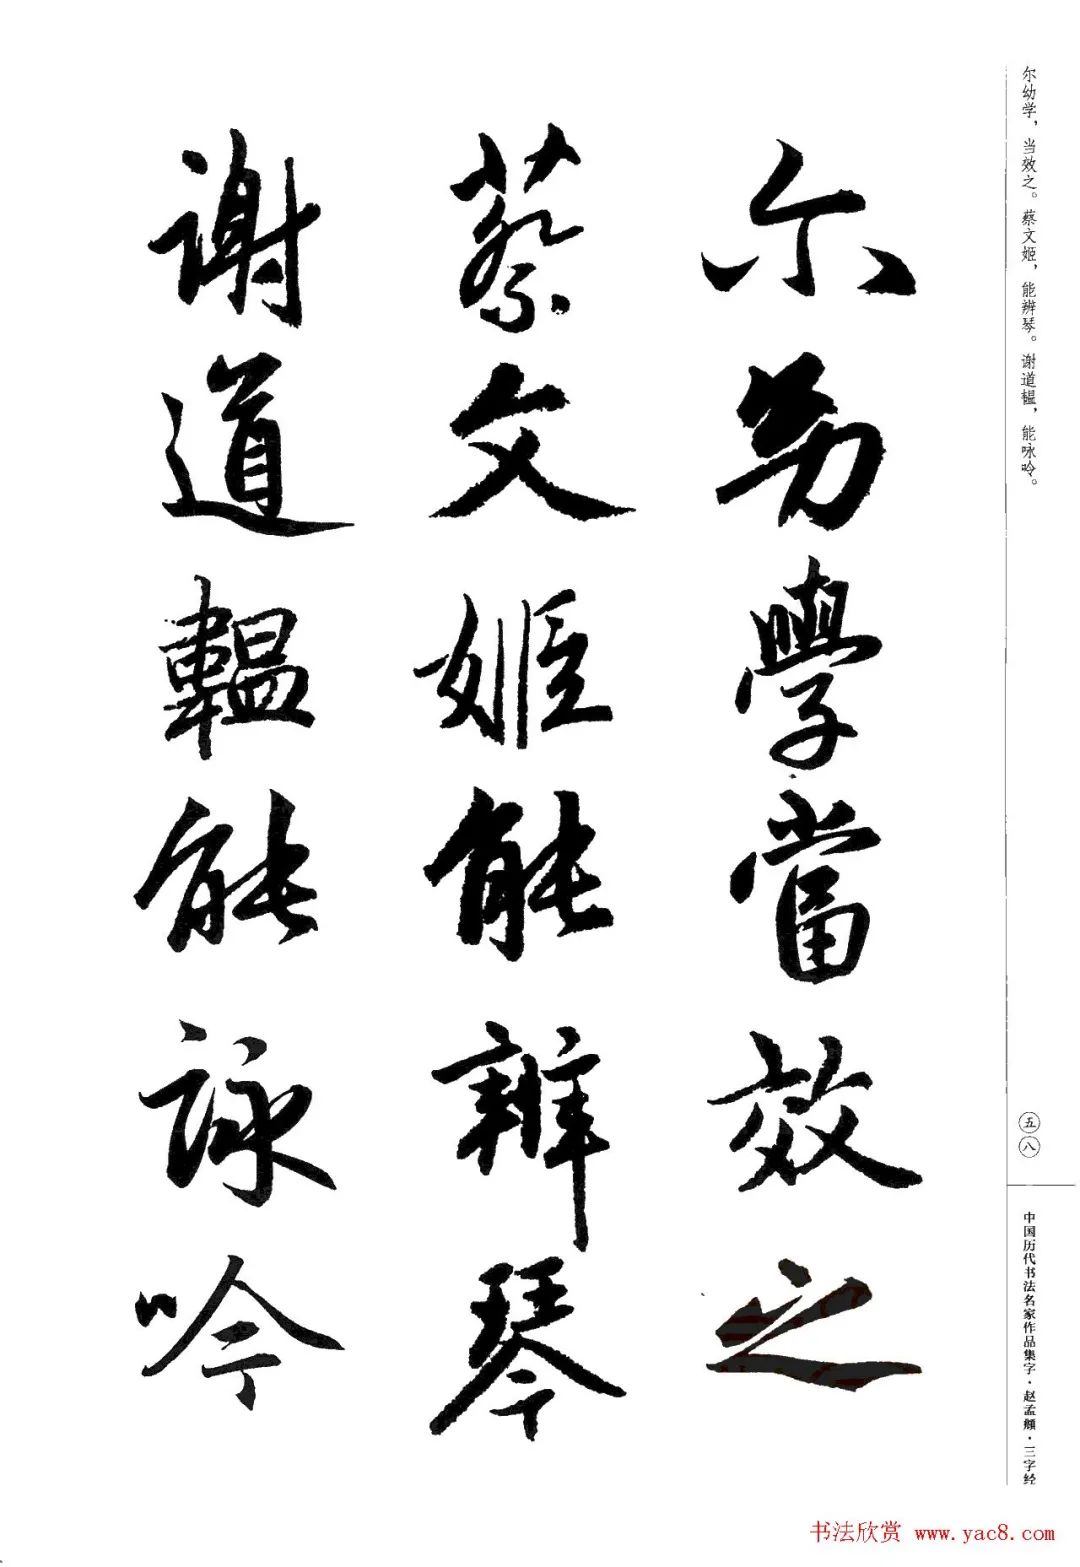 尔幼学，当效之。蔡文姬，能辨琴。谢道韫，能咏吟。
尔幼學當效之
蔡文姬能辨琴
謝道韞能詠吟
五八
中国历代书法名家作品集字·赵孟頫·三字经
书法欣赏 www.yac8.com